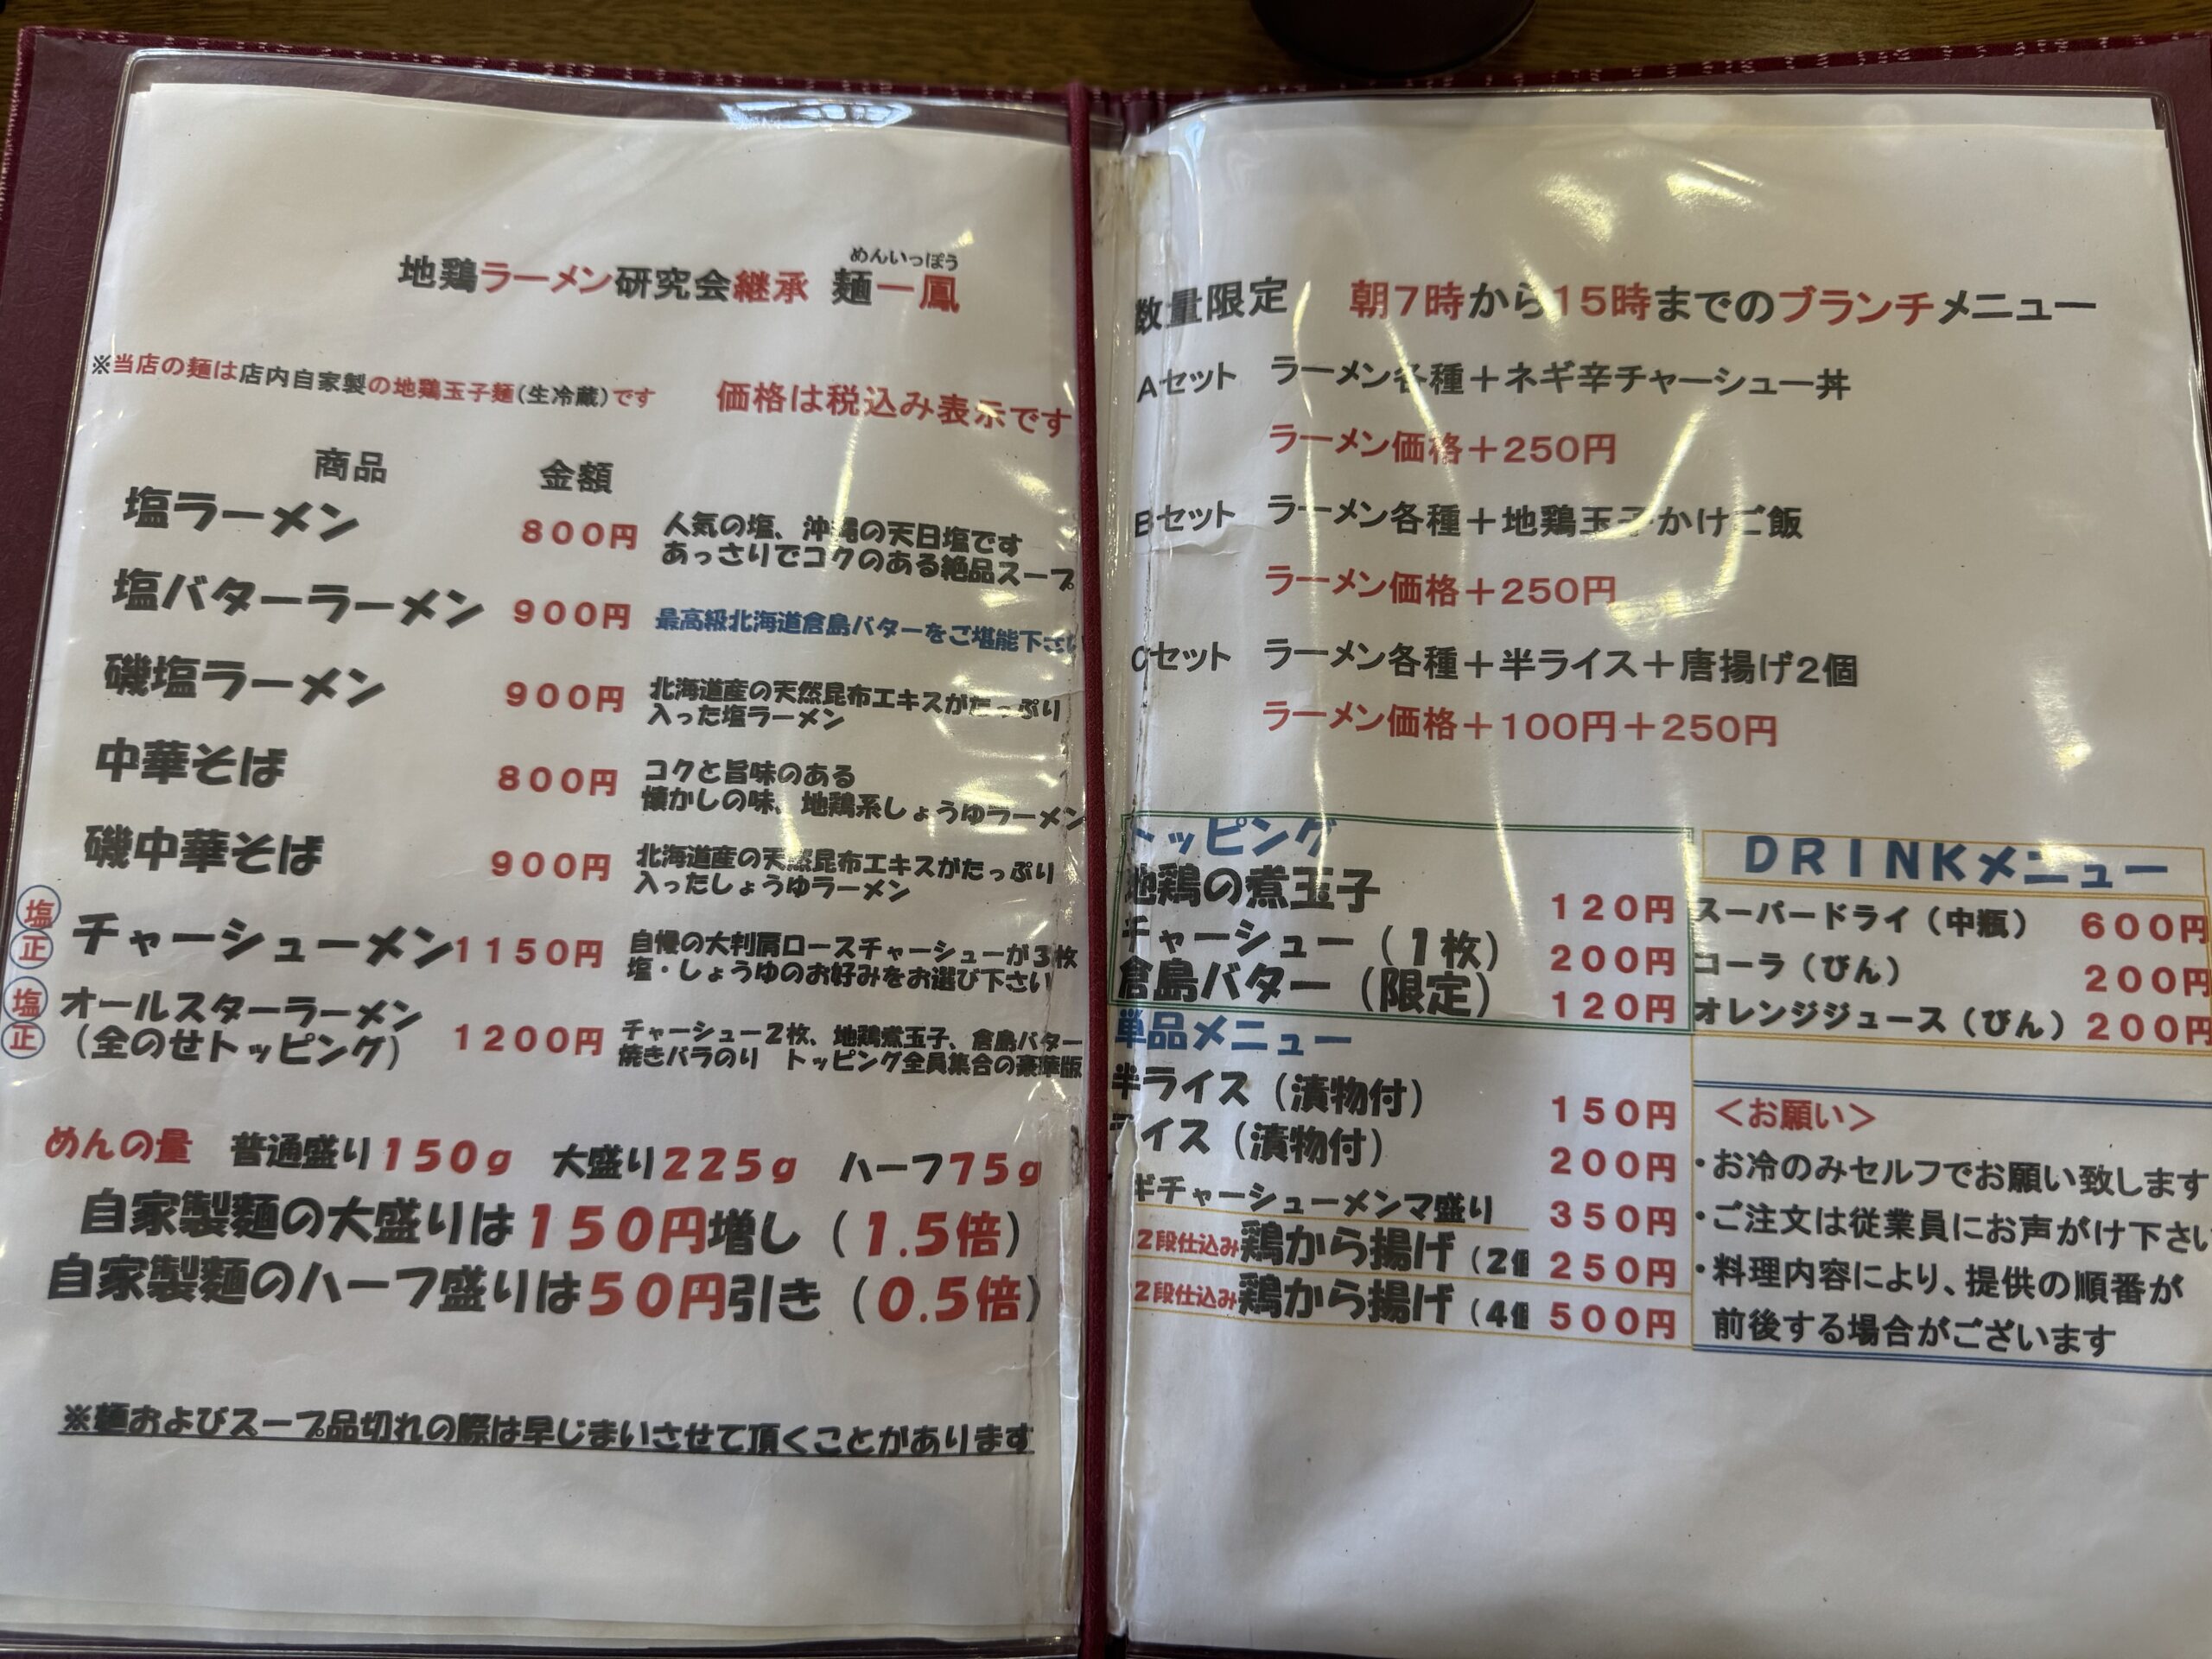 めんいっぽう
地鶏ラーメン研究会継承 麺一鳳
※当店の麺は店内自家製の地鶏玉子麺(生冷蔵)です 価格は税込み表示です
商品 金額
塩ラーメン 800円 人気の塩、沖縄の天日塩です
あっさりでコクのある絶品スープ
塩バターラーメン 900円 最高級北海道倉島バターをご堪能下さい
磯塩ラーメン 900円 北海道産の天然昆布エキスがたっぷり
入った塩ラーメン
中華そば 800円 コクと旨味のある
懐かしの味、地鶏系しょうゆラーメン
磯中華そば 900円 北海道産の天然昆布エキスがたっぷり
入ったしょうゆラーメン
塩 正 チャーシューメン 1150円 自慢の大判肩ロースチャーシューが3枚
塩・しょうゆのお好みをお選び下さい
塩 正 オールスターラーメン 1200円 チャーシュー2枚、地鶏煮玉子、倉島バター
(全のせトッピング) 焼きバラのり トッピング全員集合の豪華版
めんの量 普通盛り150g 大盛り225g ハーフ75g
自家製麺の大盛りは150円増し(1.5倍)
自家製麺のハーフ盛りは50円引き(0.5倍)
※麺およびスープ品切れの際は早じまいさせて頂くことがあります
数量限定 朝7時から15時までのブランチメニュー
Aセット ラーメン各種+ネギ辛チャーシュー丼
ラーメン価格+250円
Bセット ラーメン各種+地鶏玉子かけご飯
ラーメン価格+250円
Cセット ラーメン各種+半ライス+唐揚げ2個
ラーメン価格+100円+250円
トッピング
地鶏の煮玉子 120円
チャーシュー(1枚) 200円
倉島バター(限定) 120円
単品メニュー
半ライス(漬物付) 150円
ライス(漬物付) 200円
ギチャーシューメンマ盛り 350円
2段仕込み鶏から揚げ(2個 250円
2段仕込み鶏から揚げ(4個 500円
DRINKメニュー
スーパードライ(中瓶) 600円
コーラ(びん) 200円
オレンジジュース(びん) 200円
<お願い>
・お冷のみセルフでお願い致します
・ご注文は従業員にお声がけ下さい
・料理内容により、提供の順番が
前後する場合がございます